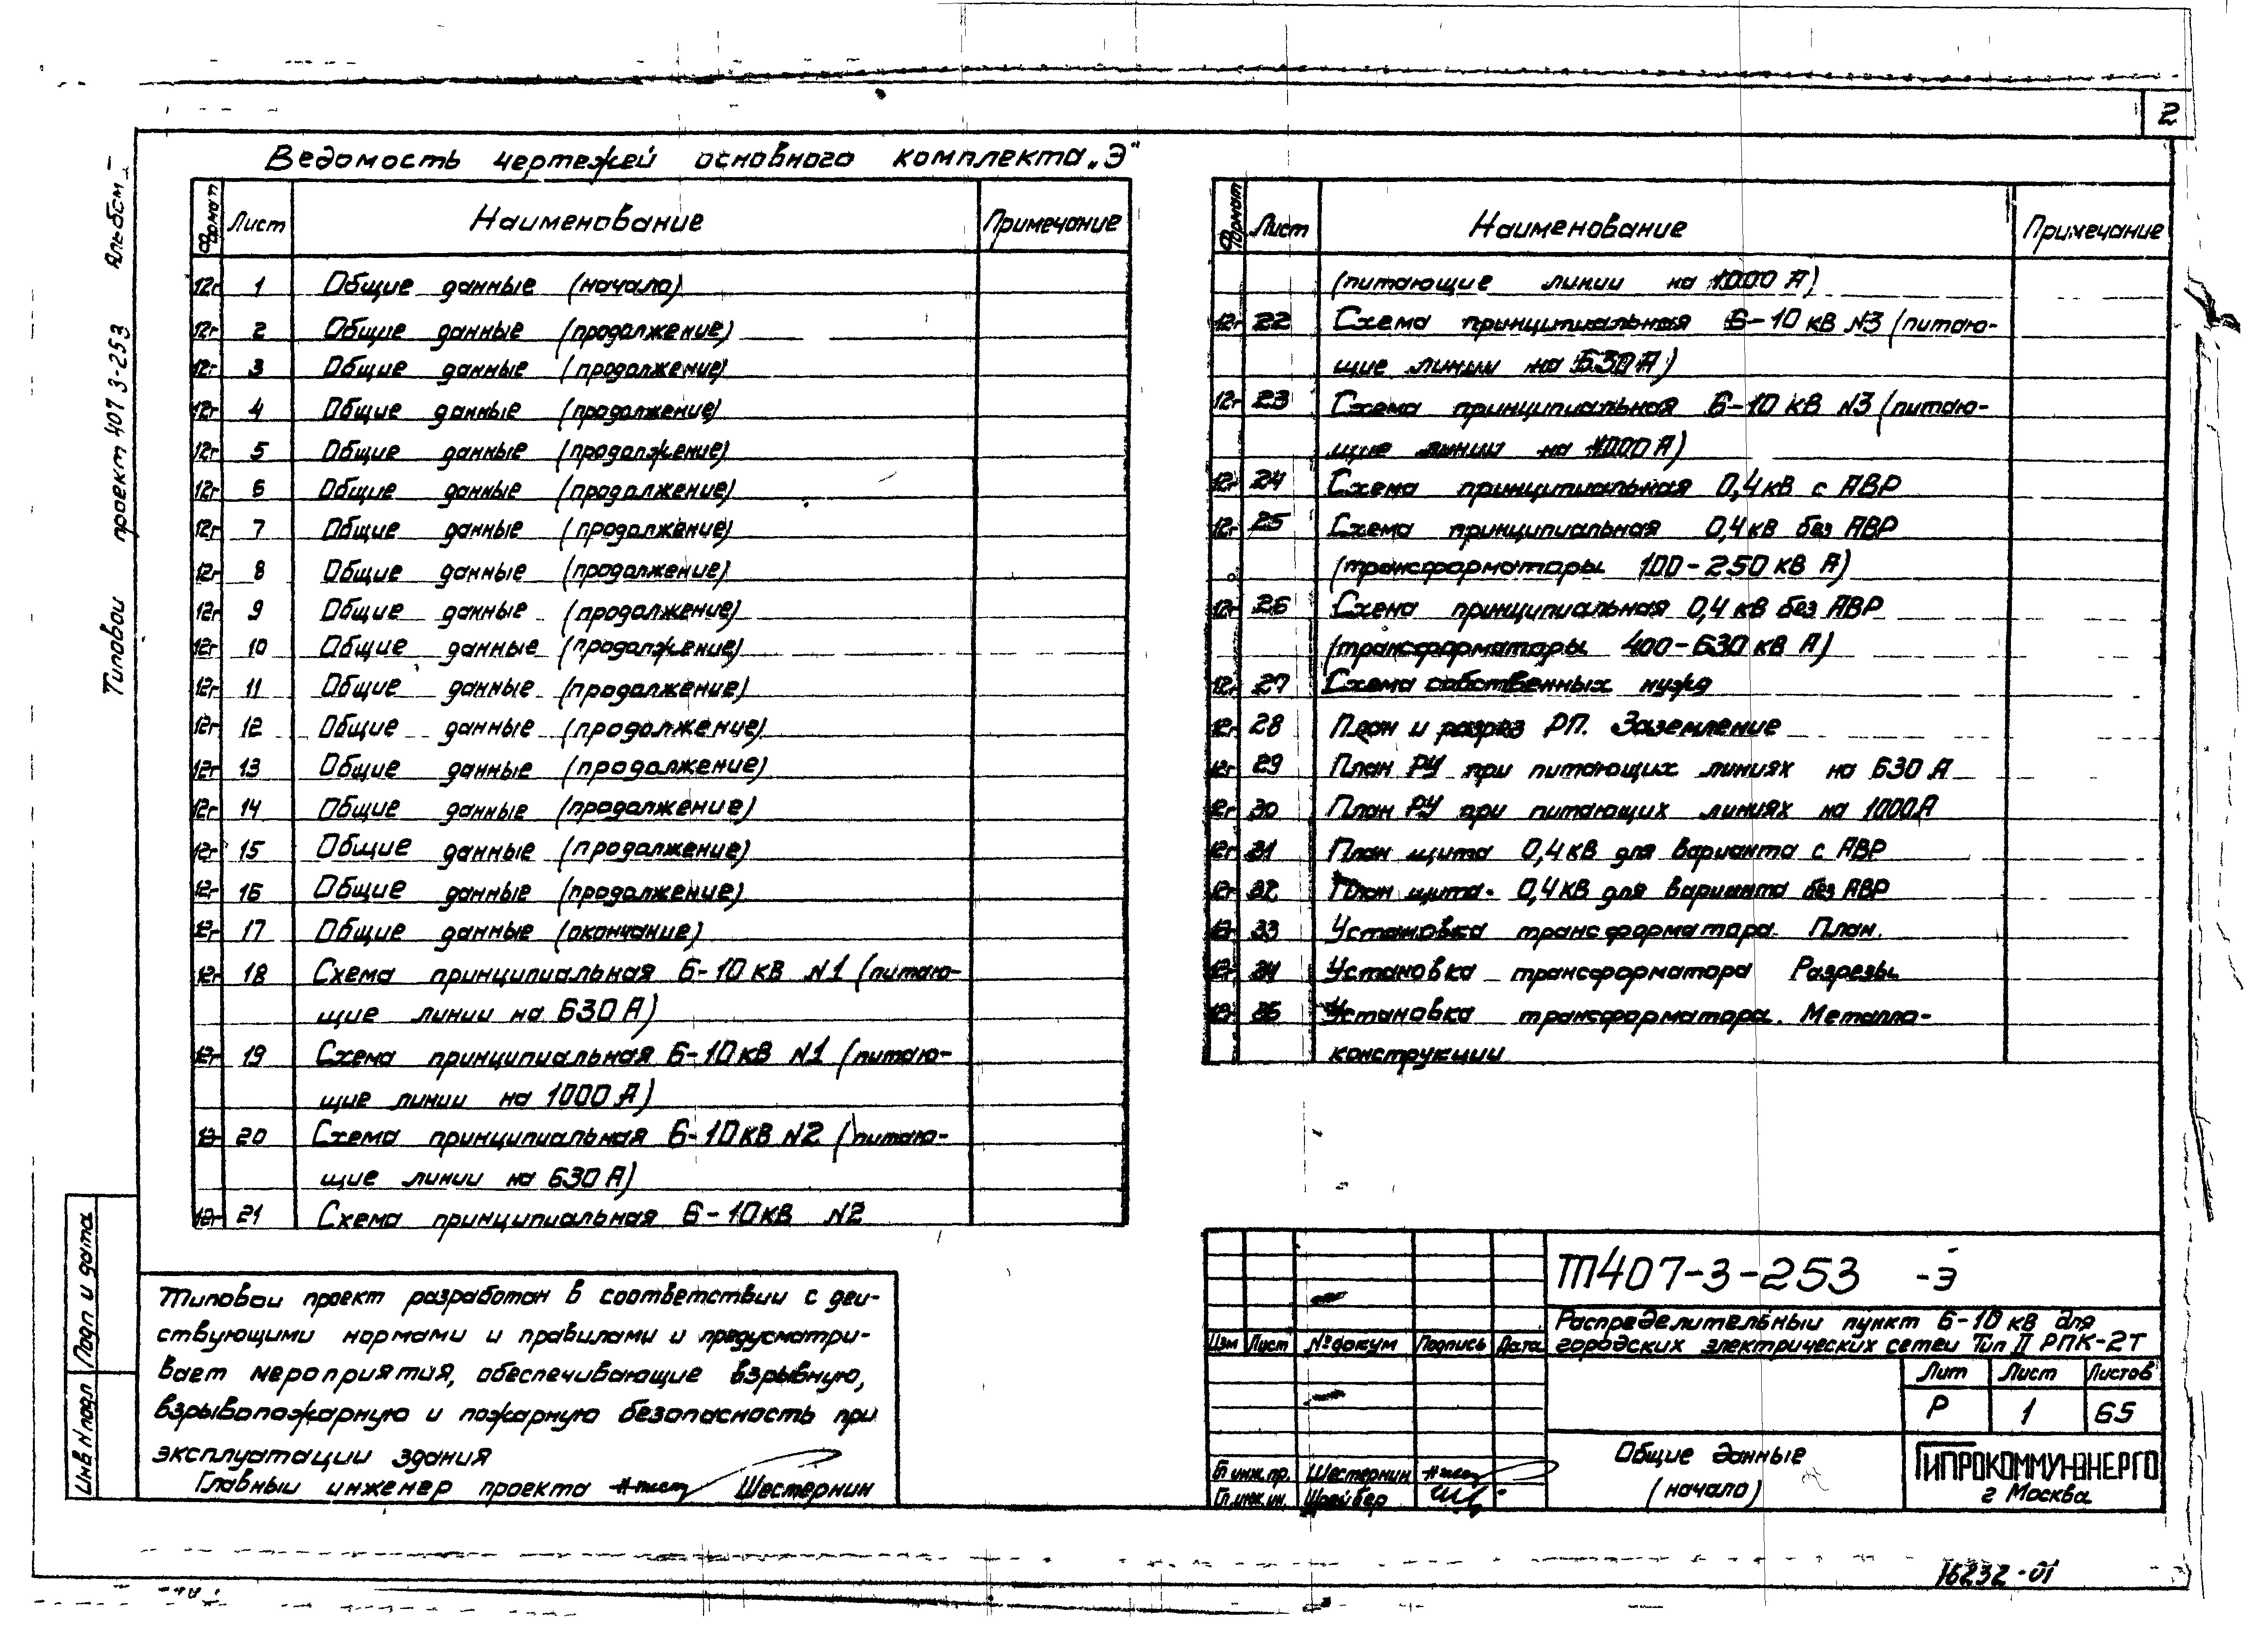 2
Типовой проект 407 3-253 Альбом
Ведомость чертежей основного комплекта „Э“
Формат Лист Наименование Примечание
12г 1 Общие данные (начало)
12г 2 Общие данные (продолжение)
12г 3 Общие данные (продолжение)
12г 4 Общие данные (продолжение)
12г 5 Общие данные (продолжение)
12г 6 Общие данные (продолжение)
12г 7 Общие данные (продолжение)
12г 8 Общие данные (продолжение)
12г 9 Общие данные (продолжение)
12г 10 Общие данные (продолжение)
12г 11 Общие данные (продолжение)
12г 12 Общие данные (продолжение)
12г 13 Общие данные (продолжение)
12г 14 Общие данные (продолжение)
12г 15 Общие данные (продолжение)
12г 16 Общие данные (продолжение)
12г 17 Общие данные (окончание)
12г 18 Схема принципиальная 6-10 кВ N1 (питаю-
щие линии на 630 А)
12г 19 Схема принципиальная 6-10 кВ N1 (питаю-
щие линии на 1000 А)
12г 20 Схема принципиальная 6-10 кВ N2 (питаю-
щие линии на 630 А)
12г 21 Схема принципиальная 6-10 кВ N2
Формат Лист Наименование Примечание
(питающие линии на 1000 А)
12г 22 Схема принципиальная 6-10 кВ N3 (питаю-
щие линии на 630 А)
12г 23 Схема принципиальная 6-10 кВ N3 (питаю-
щие линии на 1000 А)
12г 24 Схема принципиальная 0,4 кВ с АВР
12г 25 Схема принципиальная 0,4 кВ без АВР
(трансформаторы 100-250 кВ А)
12г 26 Схема принципиальная 0,4 кВ без АВР
(трансформаторы 400-630 кВ А)
12г 27 Схема собственных нужд
12г 28 План и разрез РП. Заземление
12г 29 План РУ при питающих линиях на 630 А
12г 30 План РУ при питающих линиях на 1000 А
12г 31 План щита 0,4 кВ для варианта с АВР
12г 32 План щита 0,4 кВ для варианта без АВР
12г 33 Установка трансформатора. План.
12г 34 Установка трансформатора Разрезы
12г 35 Установка трансформатора. Металло-
конструкции
Типовой проект разработан в соответствии с дей-
ствующими нормами и правилами и предусматри-
вает мероприятия, обеспечивающие взрывную,
взрывопожарную и пожарную безопасность при
эксплуатации здания
Главный инженер проекта Шестернин
Подп и дата
Инв N подл
ТП407-3-253 -Э
Распределительный пункт 6-10 кВ для
городских электрических сетей Тип II РПК-2Т
Изм Лист № докум Подпись Дата
Лит Лист Листов
Р 1 65
Гл инж. пр. Шестернин
Гл. инж. ин. Шрейбер
Общие данные
(начало)
ГИПРОКОММУНЭНЕРГО
г Москва
16232-01